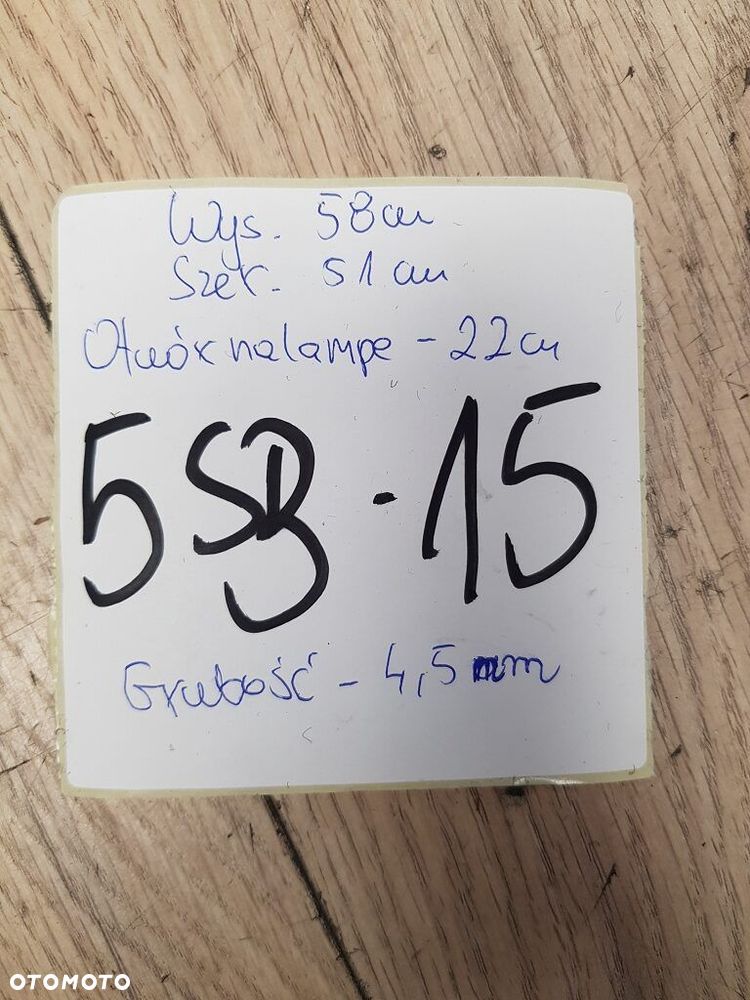 Wys. 58cm
Szer. 51 cm
Otwór na lampe - 22cm
- 15
Grubość - 4,5 mm
OTOMOTO